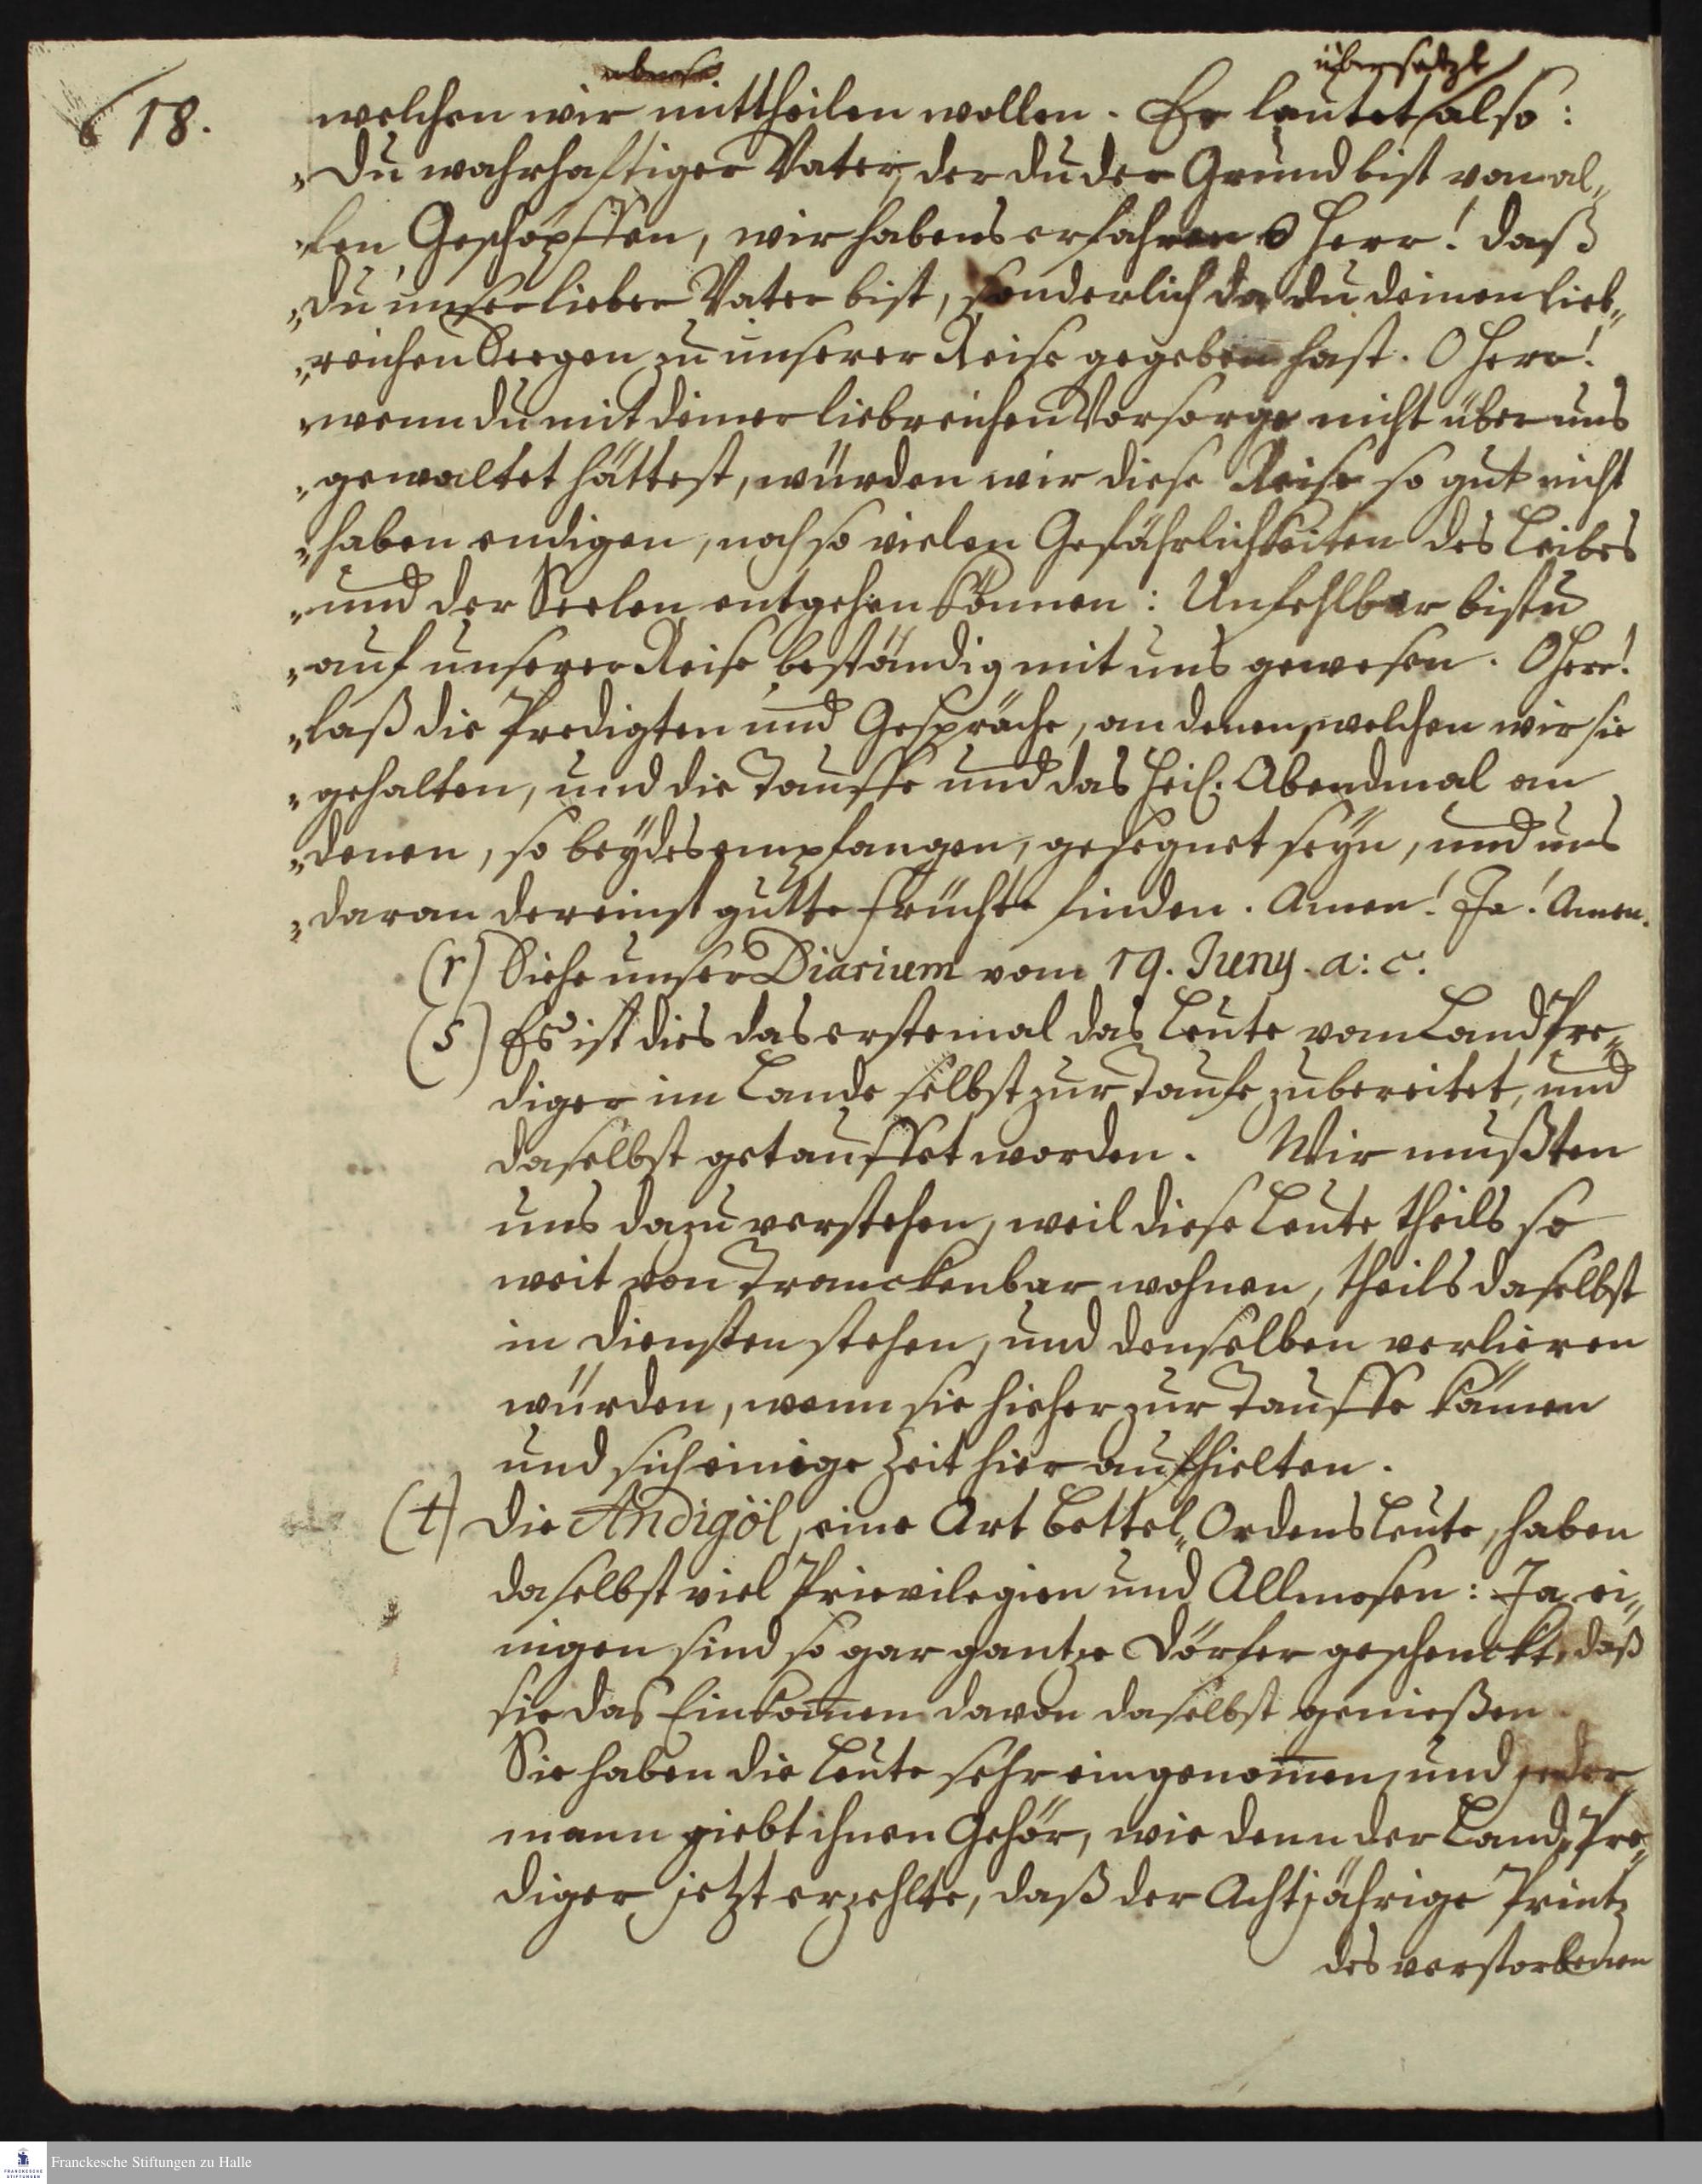 übersetzt
18. welchen wir mittheilen wollen. Er lautet also:
„Du wahrhaftiger Vater, der du der Grund bist von al„
„len Geschöpffen, wir habens erfahren o Herr! daß
„du unser lieber Vater bist, sonderlich da du deinen lieb„
„reichen Seegen zu unserer Reise gegeben hast. O Herr!
„wenn du mit deiner liebreichen Vorsorge nicht über uns
„gewaltet hättest, würden wir diese Reise so gut nicht
„haben endigen, noch so vielen Gefährlichkeiten des Leibes
„und der Seelen entgehen können: Unfehlbar bistu
„auf unserer Reise beständig mit uns gewesen. O Herr!
„laß die Predigten und Gespräche, an denen, welchen wir sie
„gehalten, und die Tauffe und das Heil. Abendmal an
„denen, so beydes empfangen, gesegnet seyn, und uns
„daran dereinst gutte Früchte finden. Amen! Ja! Amen.
(r) Siehe unser Diarium vom 19. Juny. a: c.
(s) Es ist dies das erstemal das Leute vom Land Pre„
diger im Lande selbst zur Taufe zubereitet, und
daselbst getauffet worden. Wir mußten
uns dazu verstehen, weil diese Leute theils so
weit von Tranckenbar wohnen, theils daselbst
in Diensten stehen, und denselben verlieren
würden, wenn sie hieher zur Tauffe kämen
und sich einige Zeit hier aufhielten.
(t) Die Andigöl, eine Art Bettel„Ordens Leute, haben
daselbst viel Prievilegien und Allmosen: Ja ei„
nigen sind so gar gantze Dörfer geschenckt, daß
sie das Einkom̅en davon daselbst genießen
Sie haben die Leute sehr eingenom̅en, und jeder
mann giebt ihnen Gehör, wie denn der Land„Pre„
diger jetzt erzehlte, daß der Achtjährige Printz
des verstorbenen
Franckesche Stiftungen zu Halle
FRANCKESCHE STIFTUNGEN